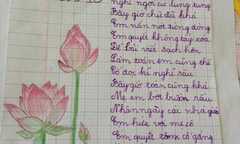 nghỉ ngơi cứ lung tung
Bây giờ chữ đã khá
Em nắn nót từng dòng
Em quyết không tẩy xóa
Để bài viết sạch hơn
Làm toán em cũng thế
Cố đọc kĩ nghĩ sâu
Bây giờ toán cũng khá
Mẹ em bớt buồn rầu
Nhân ngày các nhà giáo
Em hứa với mẹ cô
Em quyết tâm cố gắng